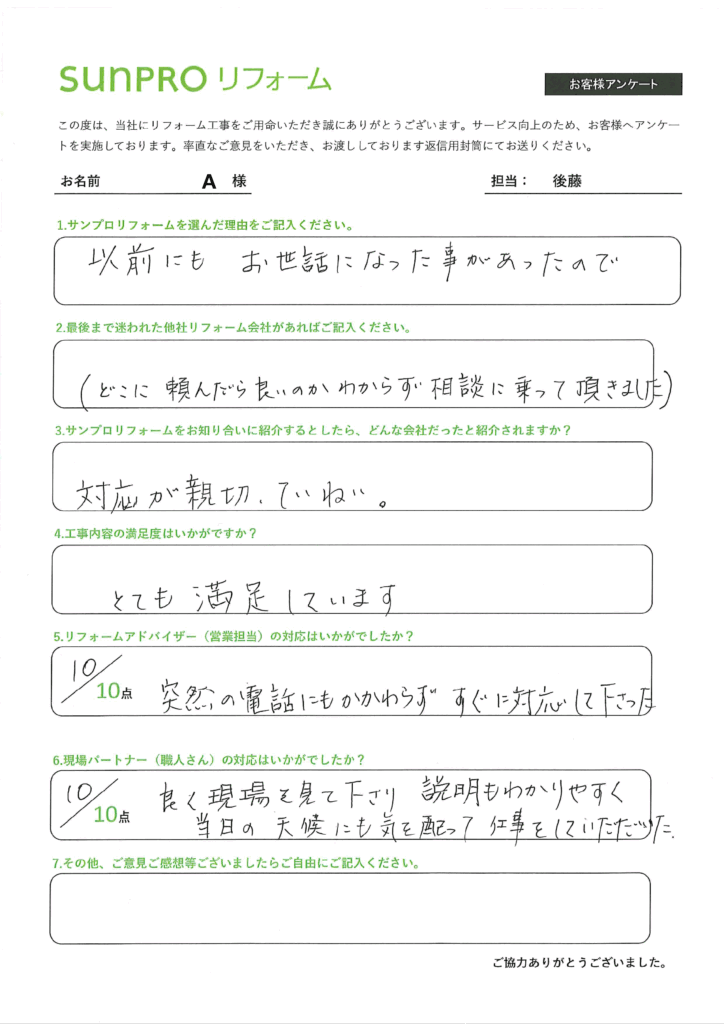 sunpro リフォーム
お客様アンケート
この度は、当社にリフォーム工事をご用命いただき誠にありがとうございます。サービス向上のため、お客様へアンケー
トを実施しております。率直なご意見をいただき、お渡ししております返信用封筒にてお送りください。
お名前 A 様 担当： 後藤
1.サンプロリフォームを選んだ理由をご記入ください。
以前にも お世話になった事があったので
2.最後まで迷われた他社リフォーム会社があればご記入ください。
(どこに 頼んだら良いのかわからず 相談に乗って頂きました)
3.サンプロリフォームをお知り合いに紹介するとしたら、どんな会社だったと紹介されますか？
対応が親切、ていねい。
4.工事内容の満足度はいかがですか？
とても 満足しています
5.リフォームアドバイザー（営業担当）の対応はいかがでしたか？
10/10点 突然の電話にもかかわらず すぐに対応して下さった
6.現場パートナー（職人さん）の対応はいかがでしたか？
10/10点 良く現場を見て下さり 説明もわかりやすく
当日の 天候にも気を配って 仕事をしていただいた.
7.その他、ご意見ご感想等ございましたらご自由にご記入ください。
ご協力ありがとうございました。